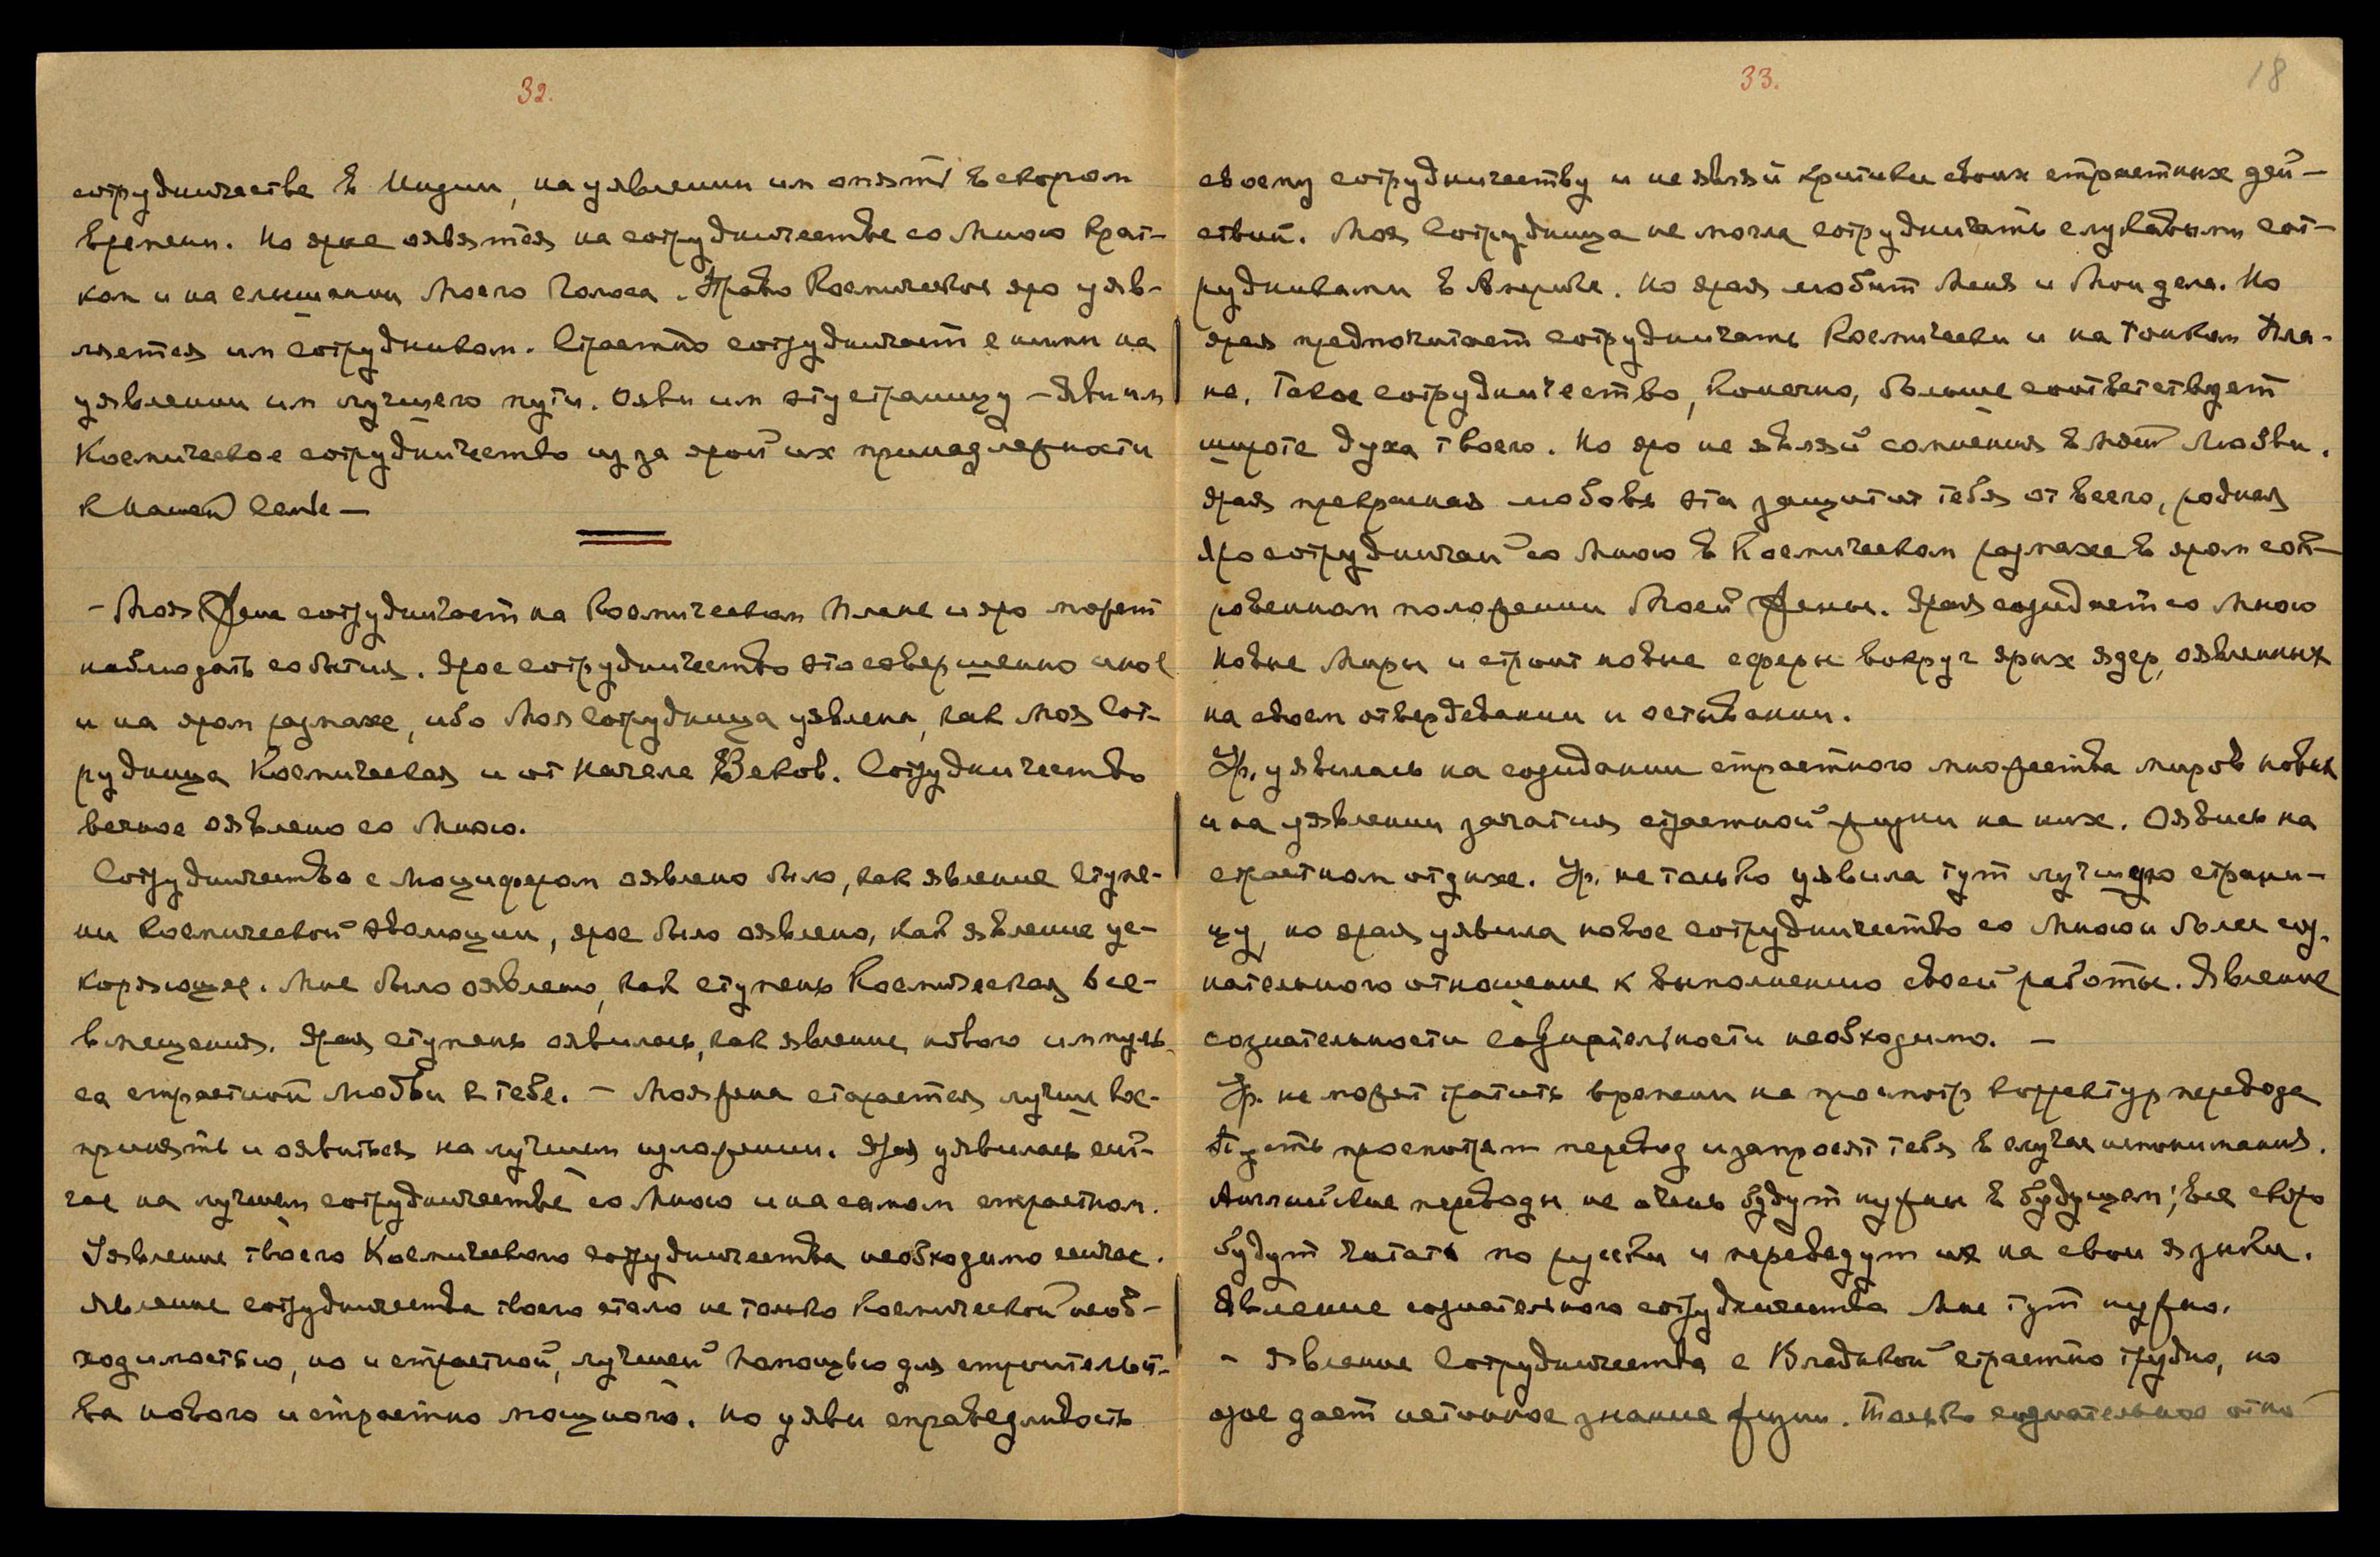 32.
сотрудничестве в Индии, на уявлении им опять в скором
времени. Но ярые оявятся на сотрудничестве со Мною крат-
ком и на слышании Моего Голоса. Право Космическое яро уяв-
ляется им Сотрудникам. Страстно сотрудничает с ними на
уявлении им лучшего пути.Ояви им эту страницу – Яви им
Космическое сотрудничество из за ярой их принадлежности
к Нашей Семье –
– Моя Жена сотрудничает на Космическом Плане и яро может
наблюдать события. Ярое сотрудничество это совершенно иное
и на яром размахе, ибо Моя Сотрудница уявлена, как Моя Сот-
рудница Космическая и от Начала Веков. Сотрудничество
вечное оявлено со Мною.
Сотрудничество с Люцифером оявлено было, как явление Ступе-
ни Космической Эволюции, ярое было оявлено, как явление ус-
коряющее. Мне было оявлено, как ступень Космическая все-
вмещения. Ярая ступень оявилась, как явление нового импуль-
са страстной Любви к тебе. – Моя жена старается лучше вос-
принять и оявиться на лучшем изложении. Ярая уявилась сей-
час на лучшем сотрудничестве со Мною и на самом страстном.
Уявление твоего Космического сотрудничества необходимо сейчас.
Явление сотрудничества твоего стало не только Космической необ-
ходимостью, но и страстной, лучшей Помощью для строительст-
ва нового и страстно мощного. Но уяви справедливость
33.
18
своему сотрудничеству и не являй критики своих страстных дей-
ствий. Моя Сотрудница не могла сотрудничать с лукавыми сот-
рудниками в Америке. Но ярая любит Меня и Мои дела. Но
ярая предпочитает сотрудничать Космически и на Тонком Пла-
не. Такое сотрудничество, конечно, больше соответствует
широте духа твоего. Но яро не являй сомнения в Моей Любви.
Ярая прекрасная любовь эта защитит тебя от всего, родная
Яро сотрудничай со Мною в Космическом размахе в яром сок-
ровенном положении Моей Жены. Ярая созидает со Мною
новые Миры и строит новые сферы вокруг ярых ядер, оявленных
на своем отвердевании и остывании.
Ур. уявилась на созидании страстного множества миров новых
и на уявлении зачатия страстной жизни на них. Оявись на
страстном отдыхе. Ур. не только уявила тут лучшую страни-
цу, но ярая уявила новое сотрудничество со Мною и более соз-
нательного отношение к выполнению своей работы. Явление
сознательности созидательности необходимо. –
Ур. не может тратить времени на просмотр корректур перевода
Пусть просмотрят перевод и запросят тебя в случае непонимания.
Английские переводы не очень будут нужны в будущем; все скоро
будут читать по русски и переведут их на свои языки.
Явление сознательного сотрудничества Мне тут нужно.
– Явление Сотрудничества с Владыкой страстно трудно, но
ярое дает истинное знание жизни. Только сознательное отно